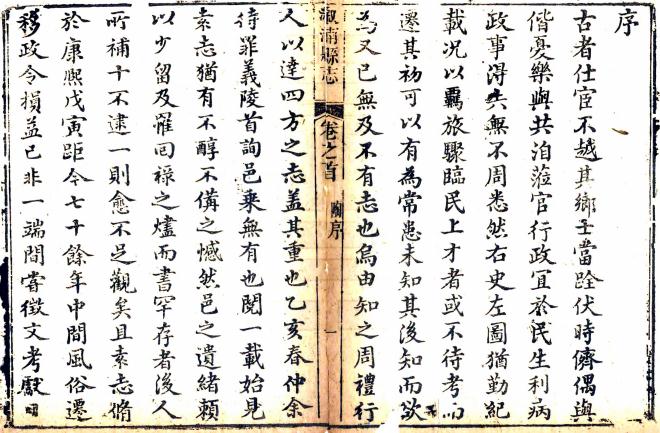 序
古者仕宦不越其鄉士當跧伏時儕偶與
偕憂樂與共洎蒞官行政冝於民生利病
政事得失無不周悉然右史左圖猶勤紀
載况以羈旅驟臨民上才者或不待考而
遷其初可以有為常患未知其後知而欲
為又已無及不有志也烏由知之周禮行
溆浦縣志
卷之首
序
一
人以達四方之志葢其重也乙亥春仲余
待罪義陵首詢邑乗無有也閱一載始見
袁志猶有不醇不備之憾然邑之遺緒頼
以少留及罹回禄之燼而書罕存者後人
所補十不逮一則愈不足觀矣且袁志脩
於康熙戊寅距今七十餘年中間風俗遷
移政令損益已非一端間嘗徴文考獻日